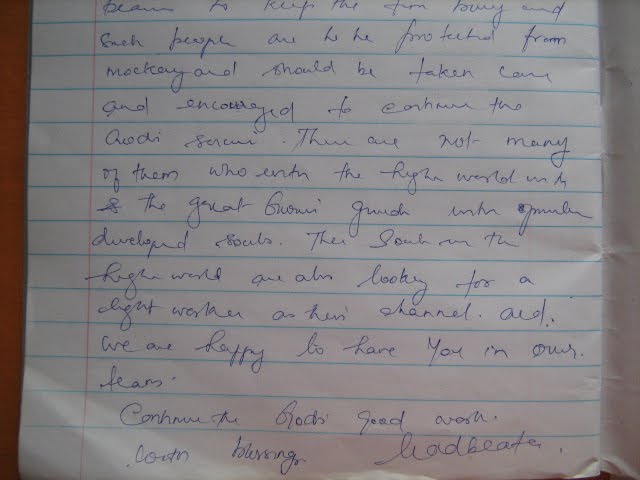 to keep the
Such people are to be protected from
mockery and should be taken care
and encouraged to continue the
Gods service. There are not many
of them who enter the higher world with
the great with
developed souls. The Souls in the
higher world are also looking for a
light worker as their channel. and.
We are happy to have You in our.
team.
Continue the Gods good work.
with blessings. Leadbeater.